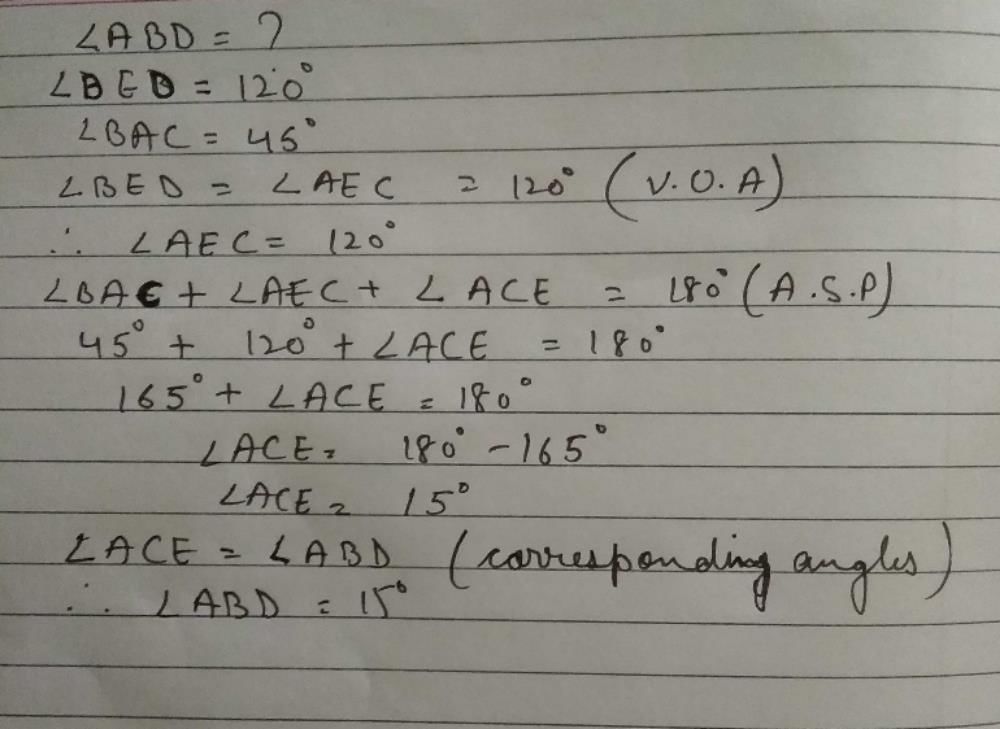 ∠ABD = ?
∠BED = 120°
∠BAC = 45°
∠BED = ∠AEC = 120° (V.O.A)
∴ ∠AEC = 120°
∠BAC + ∠AEC + ∠ACE = 180° (A.S.P)
45° + 120° + ∠ACE = 180°
165° + ∠ACE = 180°
∠ACE = 180° - 165°
∠ACE = 15°
∠ACE = ∠ABD (corresponding angles)
∴ ∠ABD = 15°